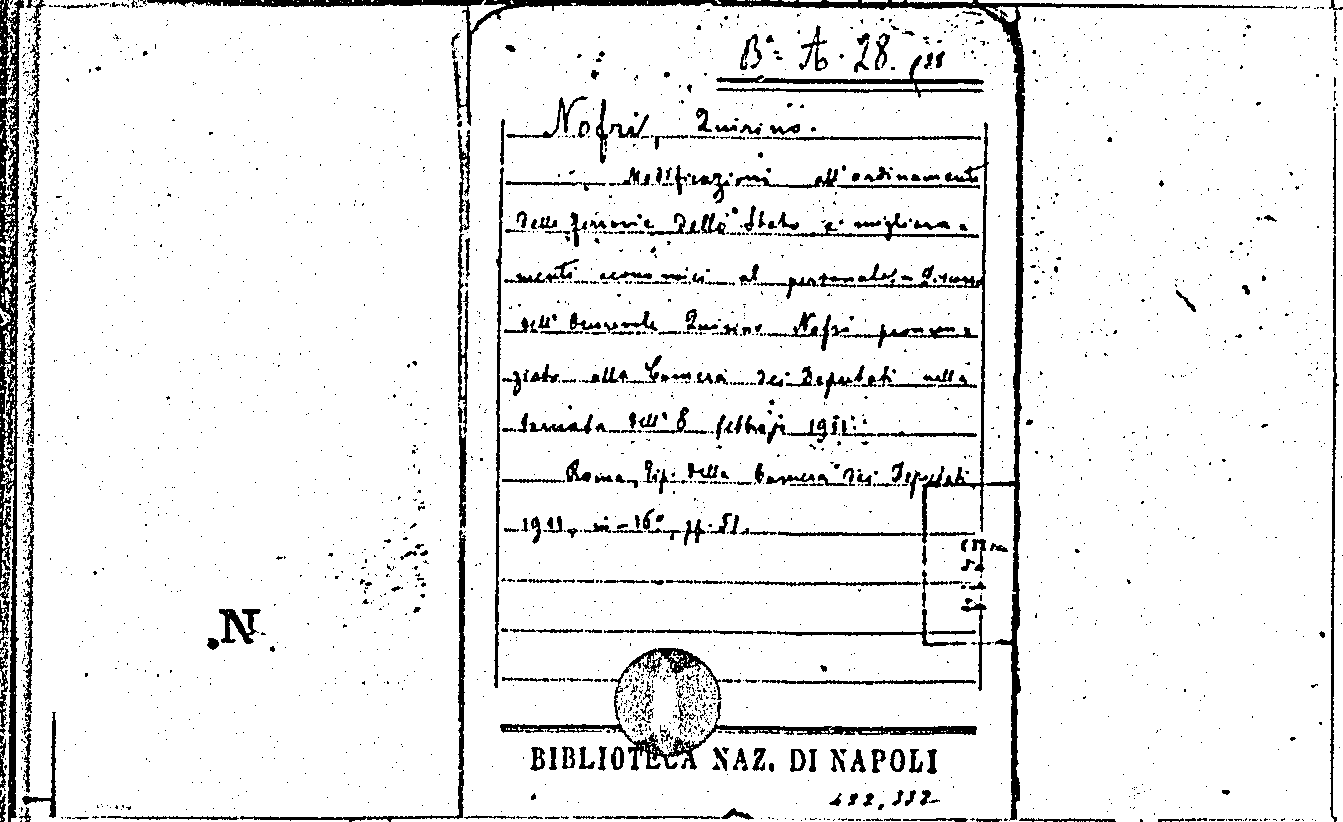 Bª A. 28.
Nofri, Quirino.
Modificazioni all'ordinamento
delle ferrovie dello Stato e migliora-
menti economici al personale. -
dell' Quirino Nofri pronun-
ziato alla Camera dei Deputati nella
tornata dell' 8 febbraio 1911.
Roma, Tip. della Camera dei Deputati,
1911, in-16º, pp. 51.
N
BIBLIOTECA NAZ. DI NAPOLI